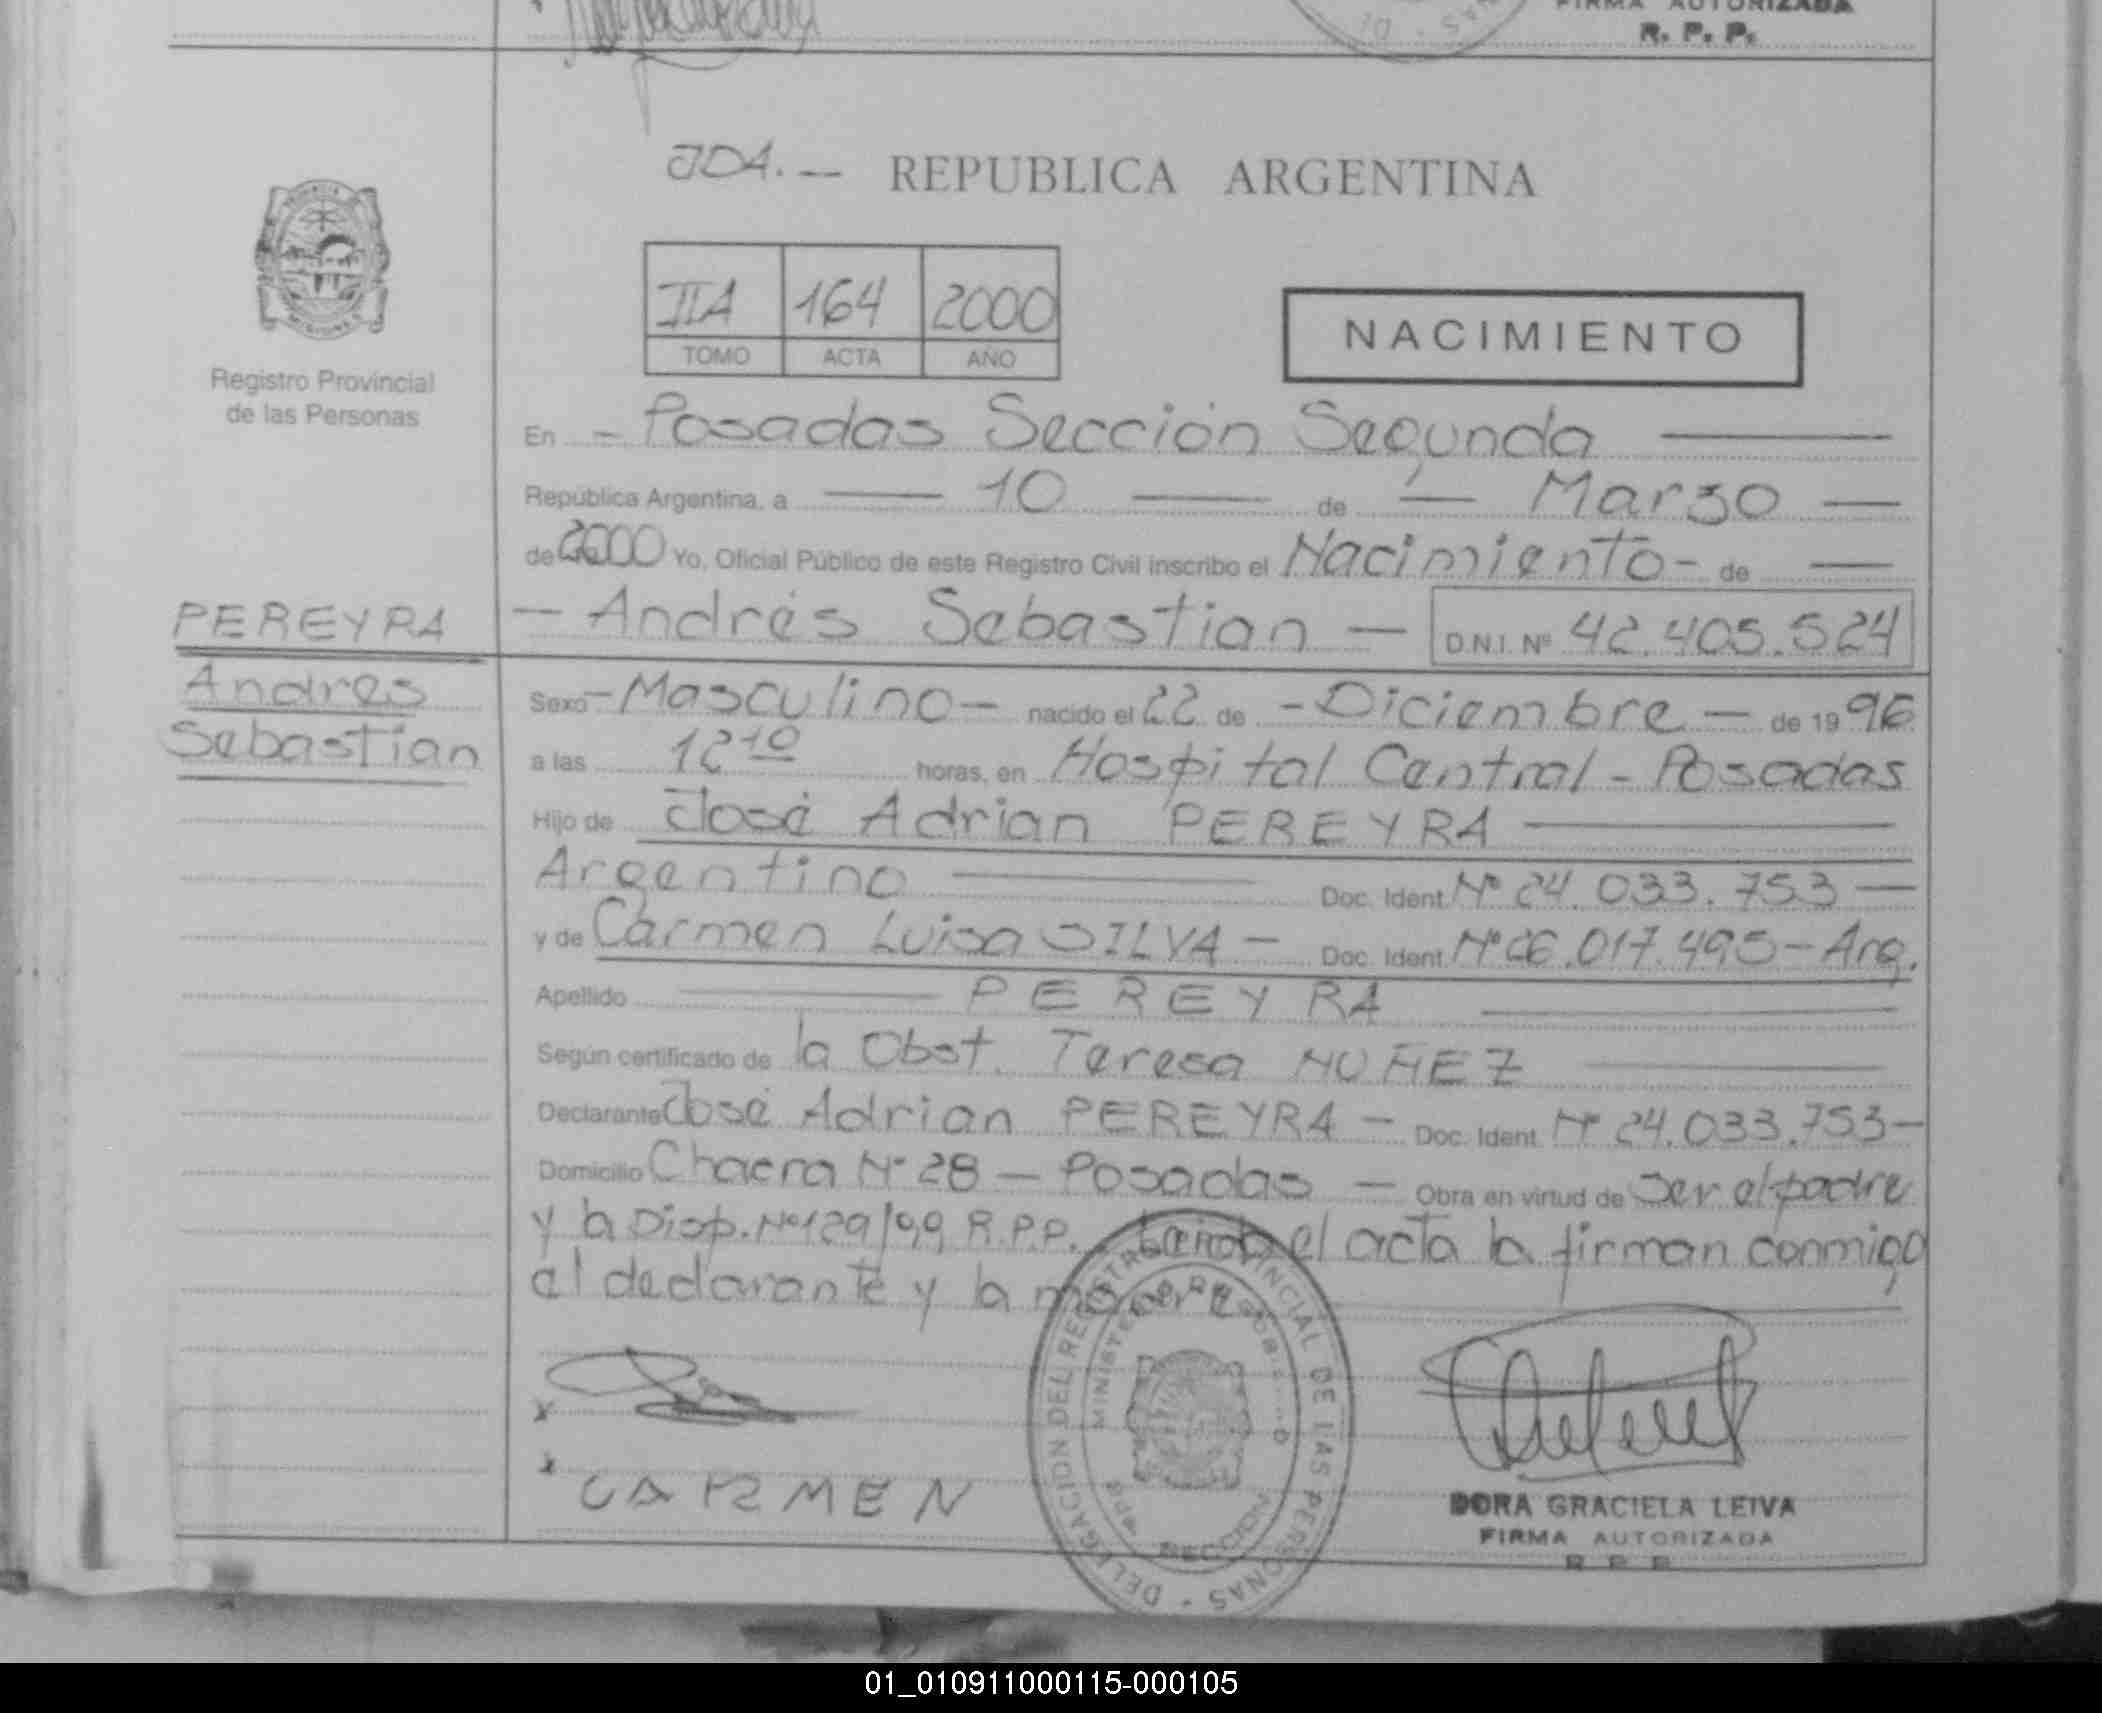 FIRMA AUTORIZADA
R. P. P.
JDA. — REPUBLICA ARGENTINA
IIA 164 2000
TOMO ACTA AÑO
NACIMIENTO
Registro Provincial
de las Personas
En - Posadas Sección Segunda —
República Argentina, a — 10 — de — Marzo —
de 2000 Yo, Oficial Público de este Registro Civil inscribo el Nacimiento - de —
PEREYRA
Andres
Sebastian
— Andrés Sebastian — D.N.I. Nº 42.405.524
Sexo - Masculino - nacido el 22 de - Diciembre - de 19 96
a las 12 10 horas, en Hospital Central - Posadas
Hijo de José Adrian PEREYRA —
Argentino — Doc. Ident. Nº 24.033.753 —
y de Carmen Luisa SILVA - Doc. Ident. Nº 26.017.495 - Arg.
Apellido — PEREYRA —
Según certificado de la Obst. Teresa NUÑEZ —
Declarante José Adrian PEREYRA - Doc. Ident. Nº 24.033.753 -
Domicilio Chacra Nº 28 - Posadas - Obra en virtud de ser el padre
y la Disp. Nº 129/99 R.P.P. Leida el acta la firman conmigo
el declarante y la madre
DELEGACION DEL REGISTRO PROVINCIAL DE LAS PERSONAS
x
x CARMEN
DORA GRACIELA LEIVA
FIRMA AUTORIZADA
R P P
01_010911000115-000105